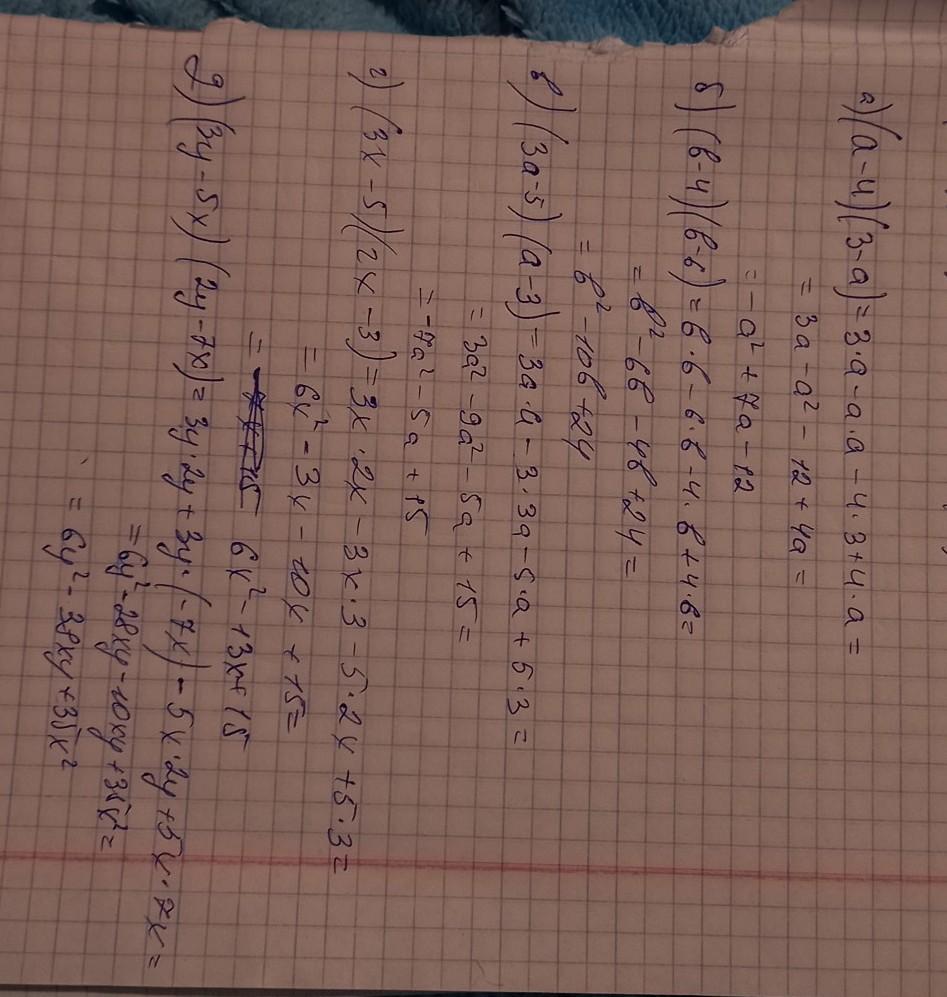 а) (a-4)(3-a)=3·a-a·a-4·3+4·a=
= 3a-a²-12+4a=
= -a²+7a-12
б) (b-4)(b-6)=b·b-6·b-4·b+4·6=
= b²-6b-4b+24=
= b²-10b+24
в) (3a-5)(a-3)=3a·a-3·3a-5·a+5·3=
= 3a²-9a²-5a+15=
= -7a²-5a+15
г) (3x-5)(2x-3)=3x·2x-3x·3-5·2x+5·3=
= 6x²-3x-10x+15=
= 6x²-13x+15
д) (3y-5x)(2y-7x)=3y·2y+3y·(-7x)-5x·2y+5x·7x=
= 6y²-28xy-10xy+35x²=
= 6y²-38xy+35x²